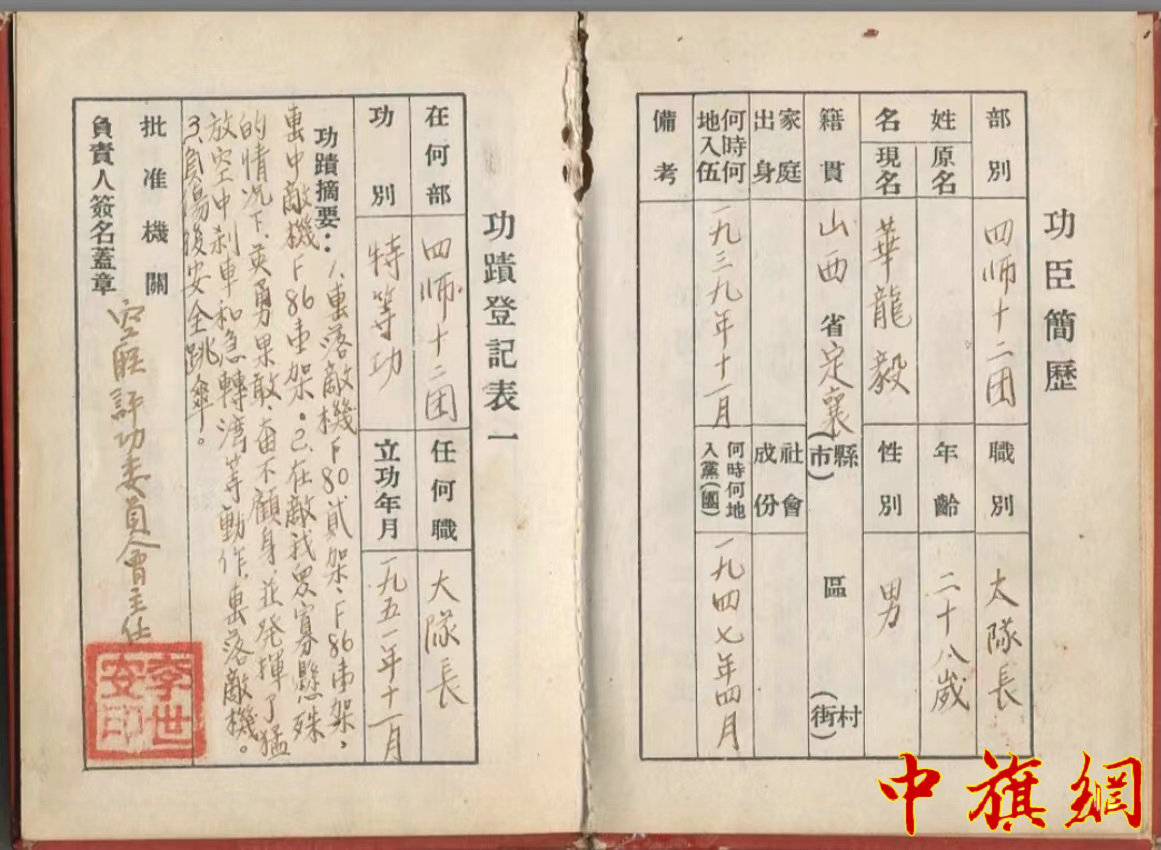 功臣簡歷
部別 四師十二团 職別 大隊長
姓名 原名 年齡 二十八歲
現名 華龍毅 性別 男
籍貫 山西省定襄縣(市) 區 村(街)
家庭出身 社會成份
何時何地入伍 一九三九年十一月 何時何地入黨(團) 一九四七年四月
備考
功蹟登記表一
在何部 四师十二团 任何職 大隊長
功別 特等功 立功年月 一九五一年十一月
功蹟摘要：1、击落敵機F80貳架、F86壹架，
击中敵機F86壹架。2、在敵我眾寡懸殊
的情况下，英勇果敢、奋不顧身，並發揮了猛
放空中剎車和急轉湾等動作，击落敵機。
3、負傷後安全跳傘。
批准機關
負責人簽名蓋章 空联評功委員會主任
李世安印
中旗網